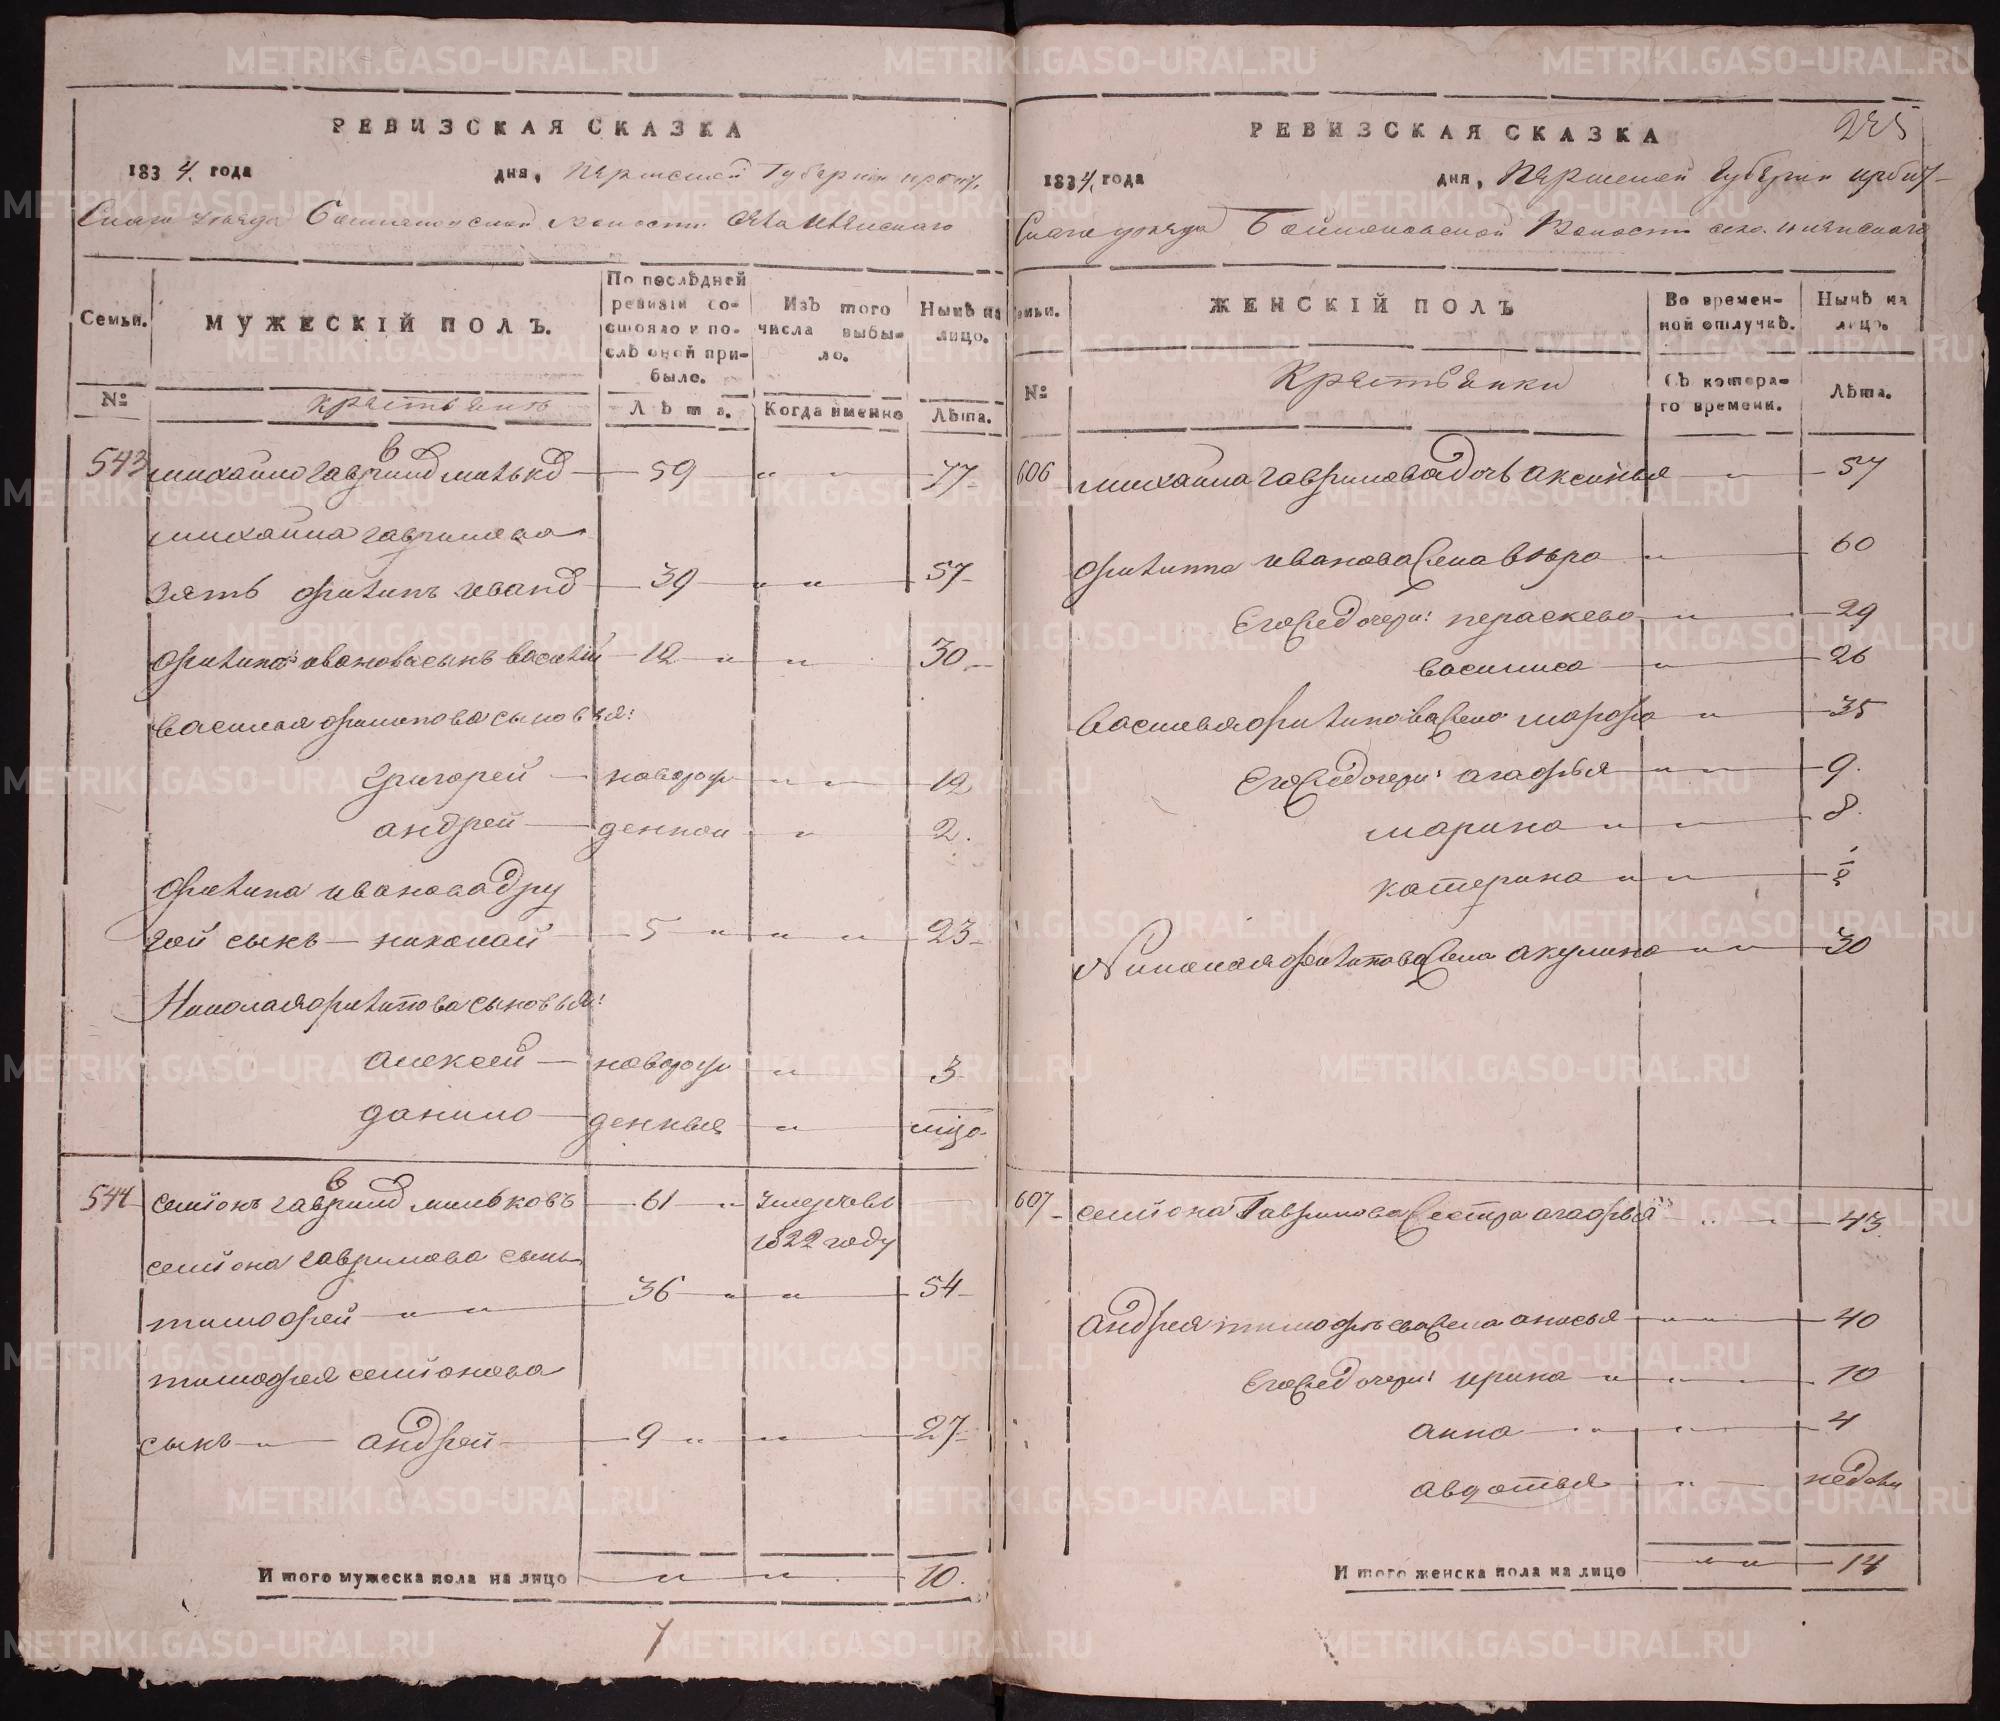 РЕВИЗСКАЯ СКАЗКА
1834 года дня, Пермской Губернии Ирбит
скаго уезда Бакшановской волости села
Семьи.
МУЖЕСКІЙ ПОЛЪ.
По послѣдней ревизіи состояло и послѣ оной прибыло.
Изъ того числа выбыло.
Нынѣ на лицо.
№
крестьяне
Лѣта.
Когда именно
Лѣта.
543 михайло гаврилов 59 " " 77
михаила гаврилова
зять филипъ иванов 39 " " 57
филипа иванова сынъ василий 12 " " 30
василья филипова сыновья:
григорей новорож " " 12
андрей денной " 2.
филипа иванова дру
гой сынъ николай 5 " " " 23
Николая филипова сыновья:
алексей новорож " 3
данило денныя "
544 семіонъ гаврилов мильковъ 61 " умер въ
1822 году
семіона гаврилова сынъ
тимофей " " 36 " " 54
тимофея семіонова
сынъ " андрей 9 " " 27
И того мужеска пола на лицо " " 10.
РЕВИЗСКАЯ СКАЗКА
1834 года дня, Пермской Губернии Ирбит
скаго уезда волости села
Семьи.
ЖЕНСКІЙ ПОЛЪ
Во временной отлучкѣ.
Нынѣ на лицо.
№
Крестьянки
Съ котораго времени.
Лѣта.
606 михаила гаврилова дочь аксинья " 57
филиппа иванова жена 60
Его же дочери: пераскева " 29
василиса " 26
василья филипова жена марфа " 35
Его же дочери: агафья " " 9.
марина " " 8.
катерина " " 1/2
Николая филипова жена акулина " " 30
607 семіона Гаврилова сестра агафья " " 43.
андрея тимофѣева жена " " 40
Его же дочери: ирина " " 10
анна " " 4
авдотья " недели
И того женска пола на лицо " " 14
METRIKI.GASO-URAL.RU